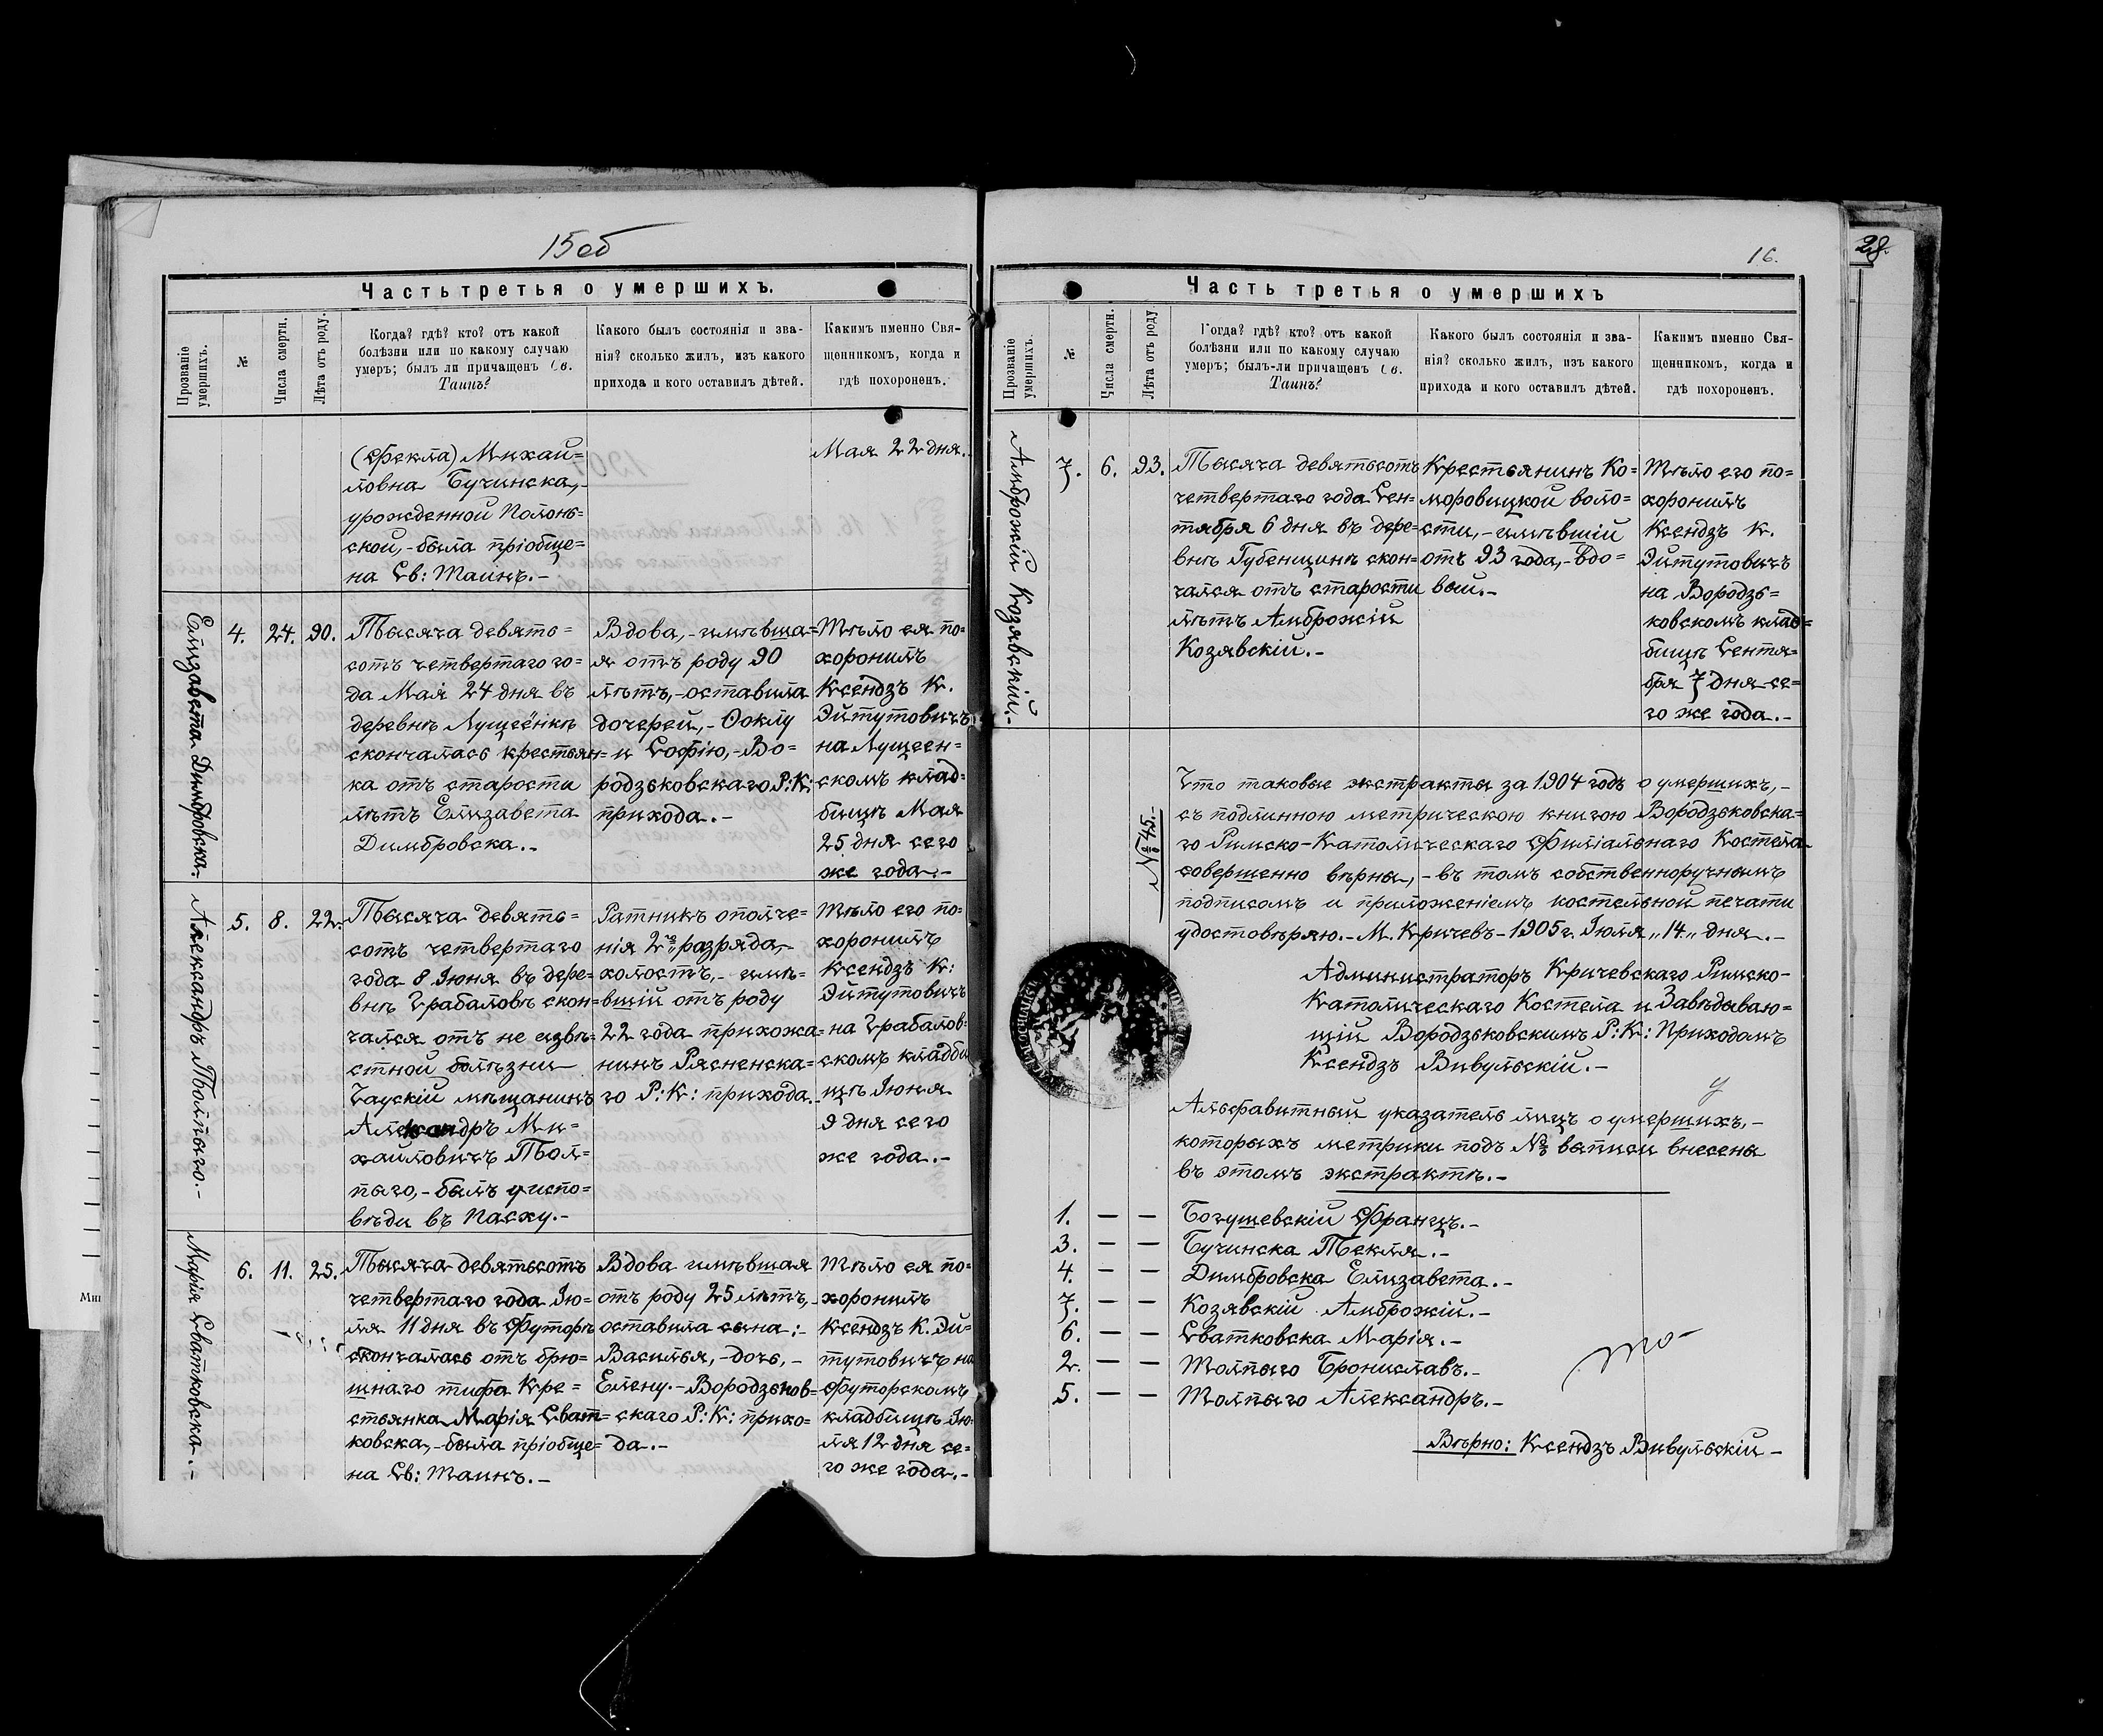 15об
Часть третья о умершихъ.
Прозваніе умершихъ.
№
Числа смерти.
Лѣта отъ роду.
Когда? гдѣ? кто? отъ какой
болѣзни или по какому случаю
умеръ; былъ ли причащенъ Св.
Таинъ?
Какого былъ состоянія и зва-
нія? сколько жилъ, изъ какого
прихода и кого оставилъ дѣтей.
Какимъ именно Свя-
щенникомъ, когда и
гдѣ похороненъ.
(Фекла) Михай=
ловна Бучинска,-
урожденной Полонь=
ской,- была пріобще=
на Св: Таинъ.-
Мая 22 дня.
Елизавета Димбровска.
4. 24. 90.
Тысяча девять=
сотъ четвертаго го=
да Мая 24 дня въ
деревнѣ Лущеёнкѣ
скончалась крестьян=
ка отъ старости
лѣтъ Елизавета
Димбровска.-
Вдова,- имѣвша=
я отъ роду 90
лѣтъ,- оставила
дочерей,- Ѳоклу
и Софію,- Во=
родзьковскаго Р:К:
прихода.-
Тѣло ея по=
хоронилъ
Ксендзъ К.
Эйтутовичъ
на Лущеен=
скомъ клад=
бищѣ Мая
25 дня сего
же года.-
Александръ Толпыго.-
5. 8. 22.
Тысяча девять=
сотъ четвертаго
года 8 Іюня въ дере=
внѣ Грабаловѣ скон=
чался отъ не извѣ=
стной болѣзни
Чаускій мѣщанинъ
Александръ Ми=
хайловичъ Тол=
пыго,- былъ у испо=
вѣди въ Пасху.-
Ратникъ ополче=
нія 2го разряда,-
холостъ,- имѣ=
вшій отъ роду
22 года прихожа=
нинъ Рясненска=
го Р:К: прихода.
Тѣло его по=
хоронилъ
Ксендзъ К:
Эйтутовичъ
на Грабалов=
скомъ кладби
щѣ Іюня
9 дня сего
же года.-
Марія Сватковска.-
6. 11. 25.
Тысяча девятьсотъ
четвертаго года Ію=
ля 11 дня въ Футорѣ
скончалась отъ брю=
шнаго тифа Кре=
стьянка Марія Сват=
ковска,- была пріобще=
на Св: Таинъ.-
Вдова имѣвшая
отъ роду 25 лѣтъ,-
оставила сына:-
Василья,- дочь,-
Елену.- Вородзьков=
скаго Р:К: прихо=
да.-
Тѣло ея по=
хоронилъ
Ксендзъ К. Эй=
тутовичъ на
Футорскомъ
кладбищѣ Ію=
ля 12 дня се=
го же года.-
16.
28.
Часть третья о умершихъ
Прозваніе умершихъ.
№
Числа смерти.
Лѣта отъ роду
Когда? гдѣ? кто? отъ какой
болѣзни или по какому случаю
умеръ; былъ-ли причащенъ Св.
Таинъ?
Какого былъ состоянія и зва-
нія? сколько жилъ, изъ какого
прихода и кого оставилъ дѣтей.
Какимъ именно Свя-
щенникомъ, когда и
гдѣ похороненъ.
Амброжій Козявскій.-
7. 6. 93.
Тысяча девятьсотъ
четвертаго года Сен=
тября 6 дня въ дере=
внѣ Губенщинѣ скон=
чался отъ старости
лѣтъ Амброжій
Козявскій.-
Крестьянинъ Ко=
моровицкой воло=
сти,- имѣвшій
отъ 93 года,- вдо=
вый.-
Тѣло его по=
хоронилъ
Ксендзъ К.
Эйтутовичъ
на Вородзь=
ковскомъ клад=
бищѣ Сентя=
бря 7 дня се=
го же года.-
Что таковые экстракты за 1904 годъ о умершихъ,-
съ подлинною метрическою книгою Вородзьковска=
го Римско-Католическаго Филіальнаго Костела
совершенно вѣрны,- въ томъ собственноручнымъ
подписомъ и приложеніемъ костельной печати
удостовѣряю.- М. Кричевъ - 1905 г. Іюля „14„ дня.-
№ 45.-
Администраторъ Кричевскаго Римско-
Католическаго Костела и Завѣдываю=
щій Вородзьковскимъ Р:К: Приходомъ
Ксендзъ Вивульскій.-
Альфавитный указатель лицъ о умершихъ,-
которыхъ метрики подъ № выписи внесены
въ этомъ экстрактѣ.-
1. — — Богушевскій Францъ.-
3. — — Бучинска Текля.-
4. — — Димбровска Елизавета.-
7. — — Козявскій Амброжій.-
6. — — Сватковска Марія.-
2. — — Толпыго Брониславъ.-
5. — — Толпыго Александръ.-
Вѣрно: Ксендзъ Вивульскій -